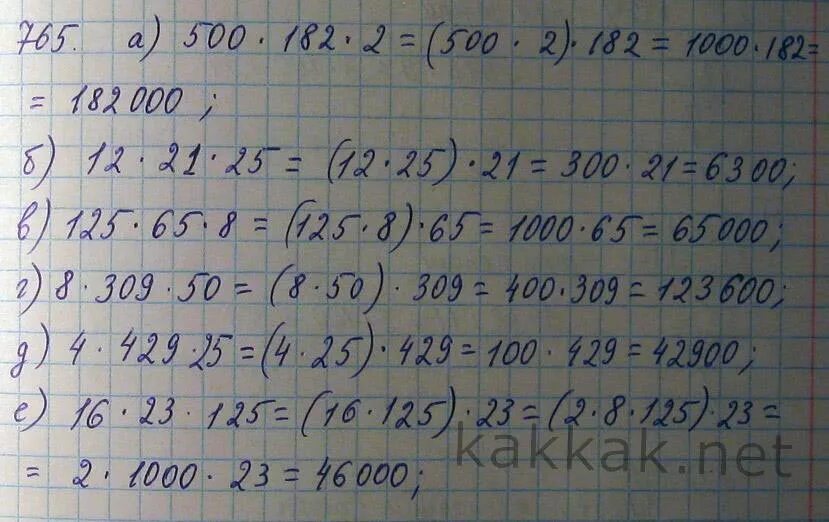 765. а) 500 · 182 · 2 = (500 · 2) · 182 = 1000 · 182 =
= 182000 ;
б) 12 · 21 · 25 = (12 · 25) · 21 = 300 · 21 = 6300;
в) 125 · 65 · 8 = (125 · 8) · 65 = 1000 · 65 = 65000;
г) 8 · 309 · 50 = (8 · 50) · 309 = 400 · 309 = 123600;
д) 4 · 429 · 25 = (4 · 25) · 429 = 100 · 429 = 42900;
е) 16 · 23 · 125 = (16 · 125) · 23 = (2 · 8 · 125) · 23 =
= 2 · 1000 · 23 = 46000;
kakkak.net